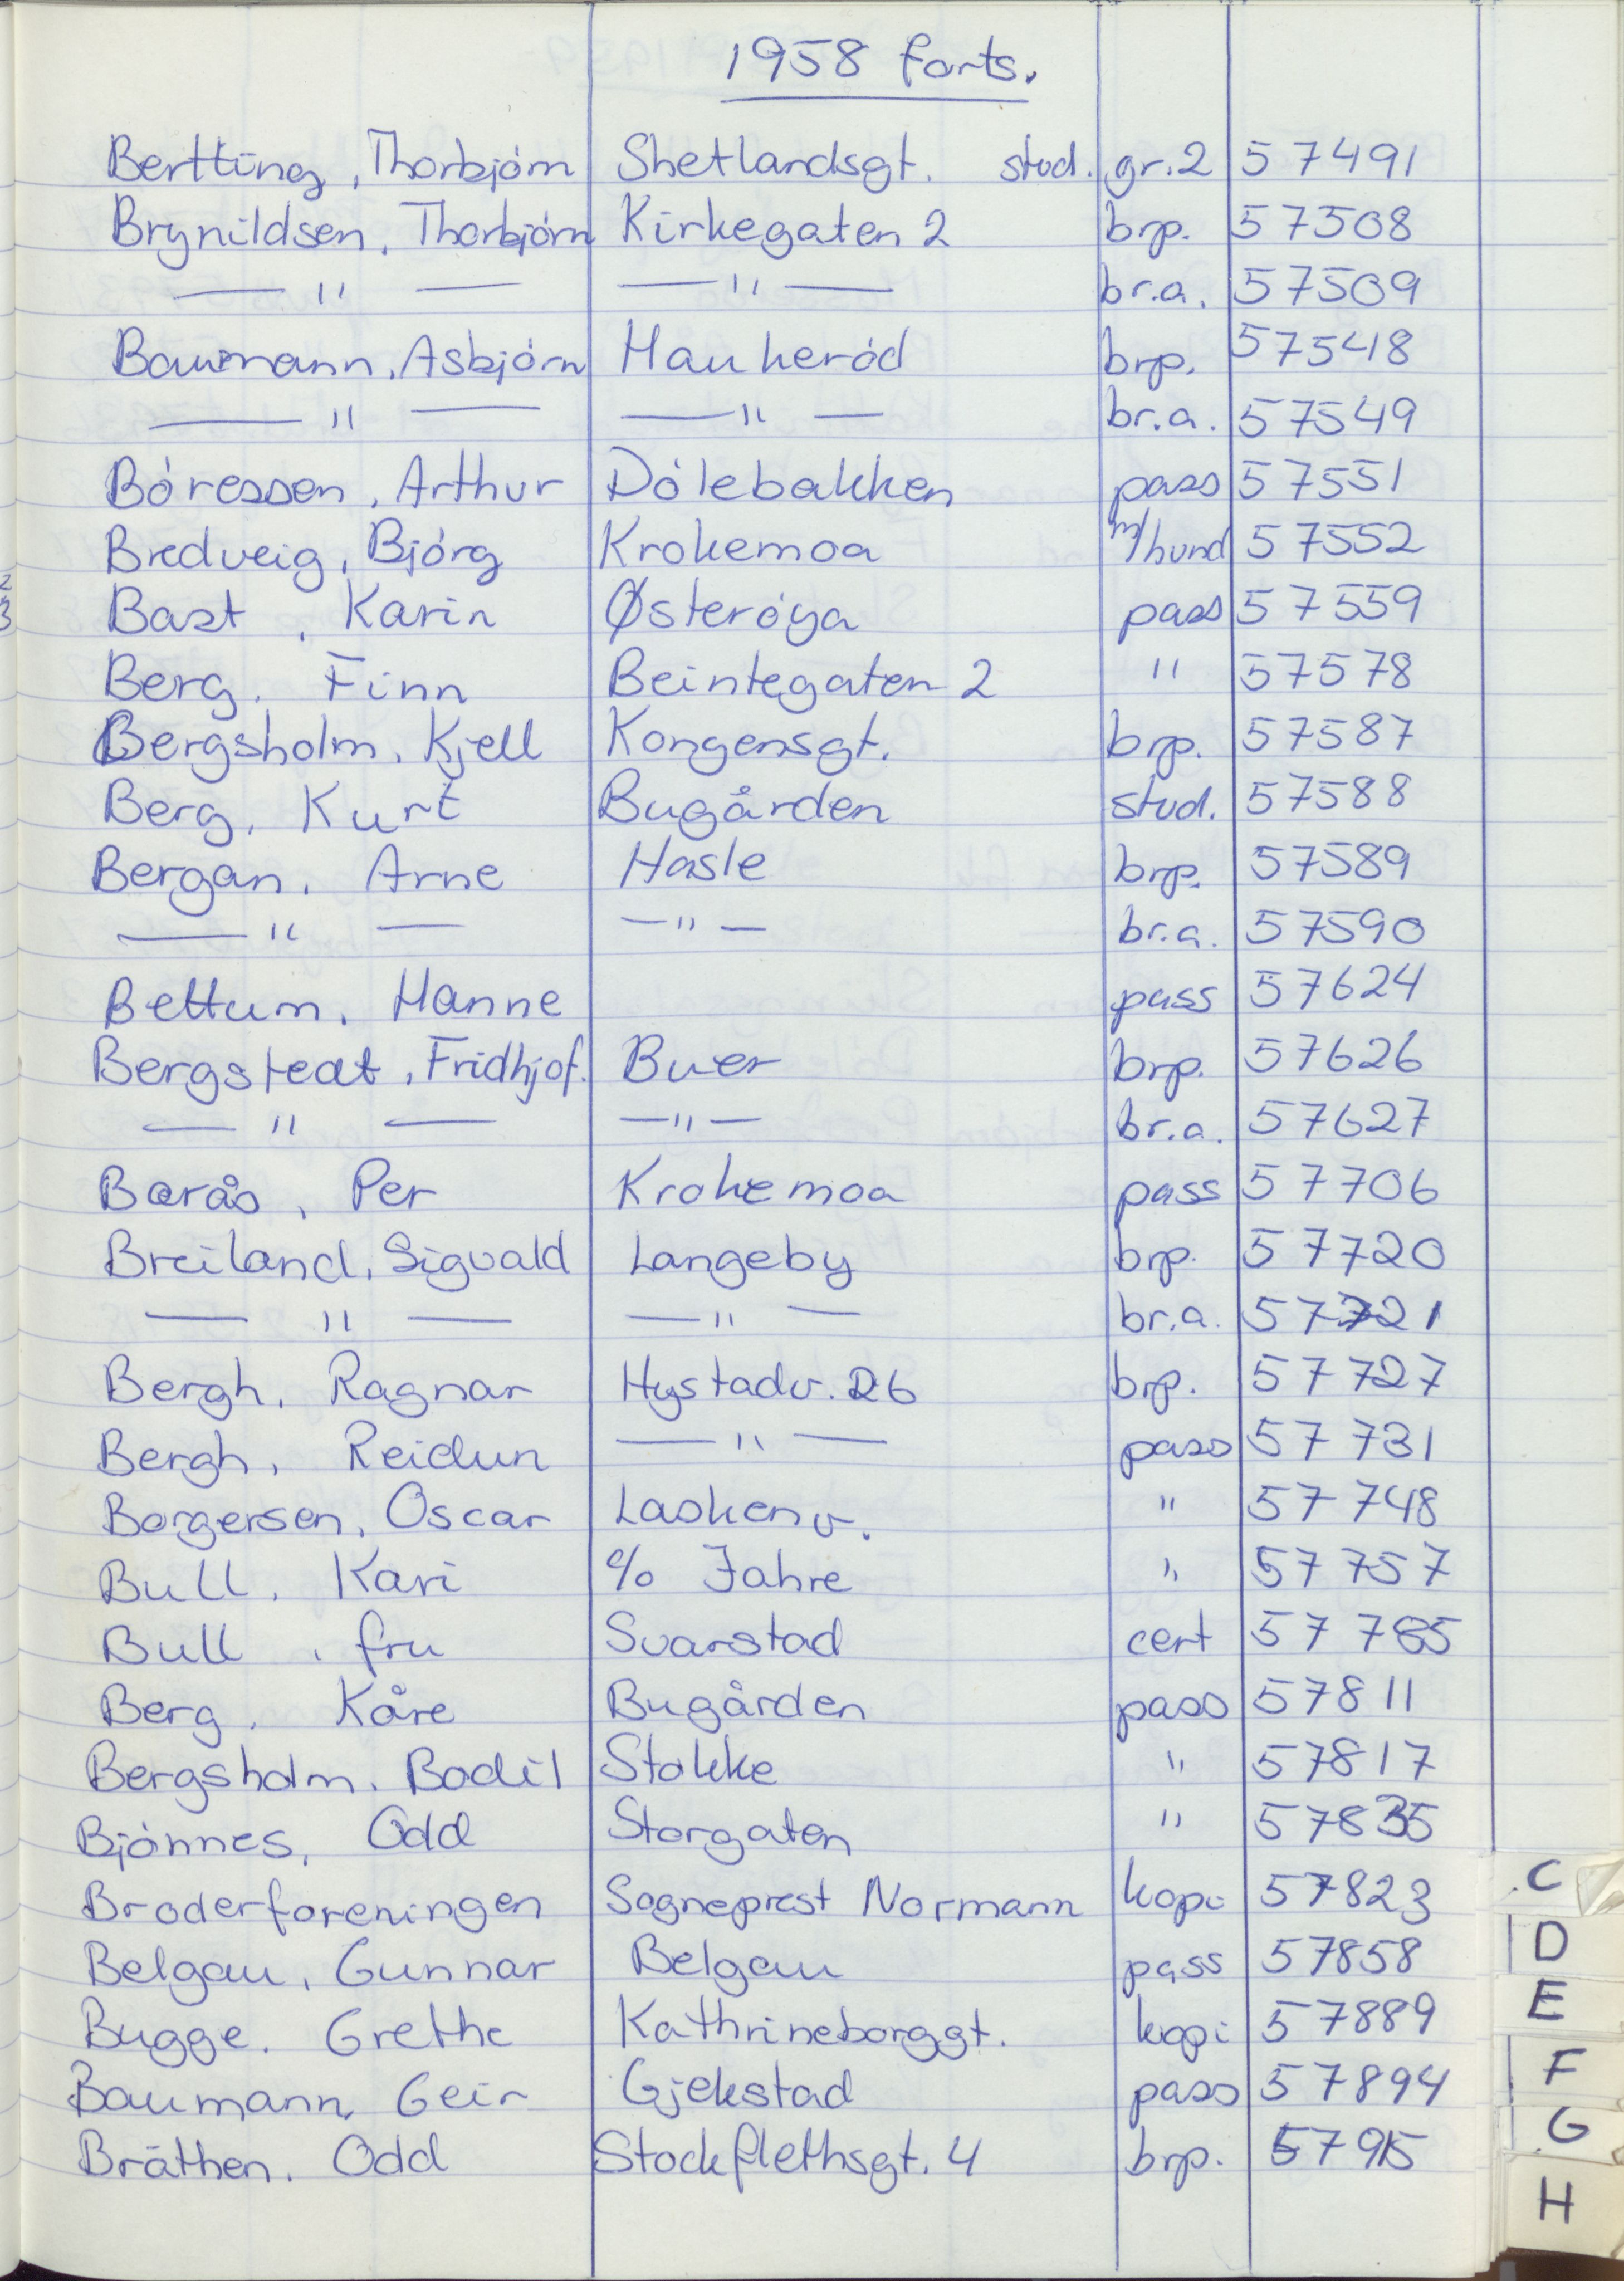 1958 forts.
Berttüng, Thorbjórn Shetlandsgt. stud. gr.2 57491
Brynildsen, Thorbjórn Kirkegaten 2 brp. 57508
— " — — " — br.a. 57509
Baumann, Asbjórn Haukeród brp. 57548
— " — — " — br.a. 57549
Bóressen, Arthur Dólebakken pass 57551
Bredveig, Bjórg Krokemoa m/hund 57552
Bast, Karin Østeróya pass 57559
Berg, Finn Beintegaten 2 " 57578
Bergsholm, Kjell Kongensgt. brp. 57587
Berg, Kurt Bugården stud. 57588
Bergan, Arne Hasle brp. 57589
— " — — " — br.a. 57590
Bettum, Hanne pass 57624
Bergstedt, Fridhjof. Buer brp. 57626
— " — — " — br.a. 57627
Barås, Per Krokemoa pass 57706
Breiland, Sigvald Langeby brp. 57720
— " — — " — br.a. 57721
Bergh, Ragnar Hystadv. 26 brp. 57727
Bergh, Reidun — " — pass 57731
Borgersen, Oscar Laskenv. " 57748
Bull, Kari c/o Jahre " 57757
Bull, fru Svarstad cert 57785
Berg, Kåre Bugården pass 57811
Bergsholm, Bodil Stokke " 57817
Bjónnes, Odd Storgaten " 57835
Broderforeningen Sogneprest Normann kopi 57823
Belgau, Gunnar Belgau pass 57858
Bugge, Grethe Kathrineborggt. kopi 57889
Baumann, Geir Gjekstad pass 57894
Bråthen, Odd Stockflethsgt. 4 brp. 57915
C
D
E
F
G
H